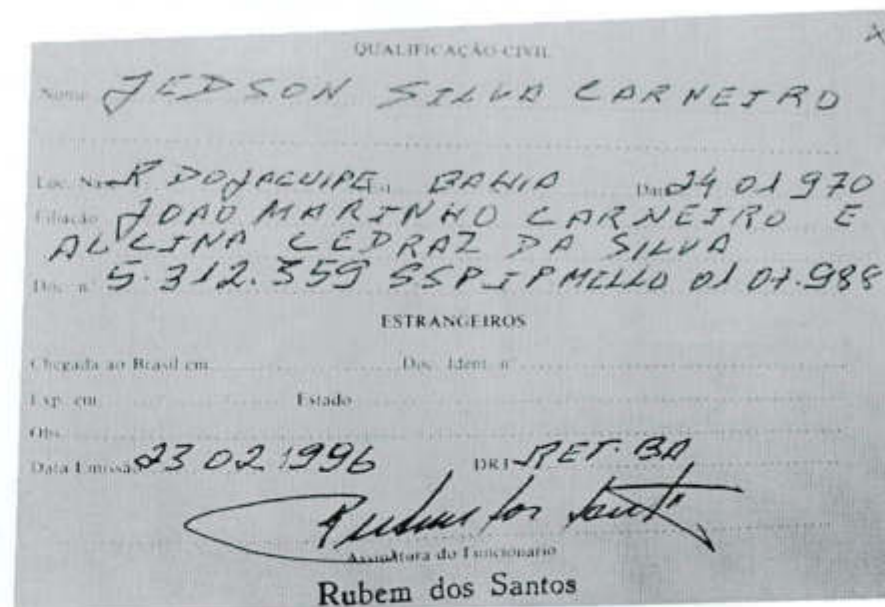 QUALIFICAÇÃO CIVIL
Nome JEDSON SILVA CARNEIRO
Loc. Nasc R. DO JACUIPE Est. BAHIA Data 24 01 970
Filiação JOAO MARINHO CARNEIRO E
ALCINA CEDRAZ DA SILVA
Doc. nº 5.312.559 SSP IPMELLO 01 07.988
ESTRANGEIROS
Chegada ao Brasil em Doc. Ident. nº
Exp. em Estado
Obs.
Data Emissão 23 02 1996 DRT RET-BA
Rubem dos Santos
Assinatura do Funcionário
Rubem dos Santos